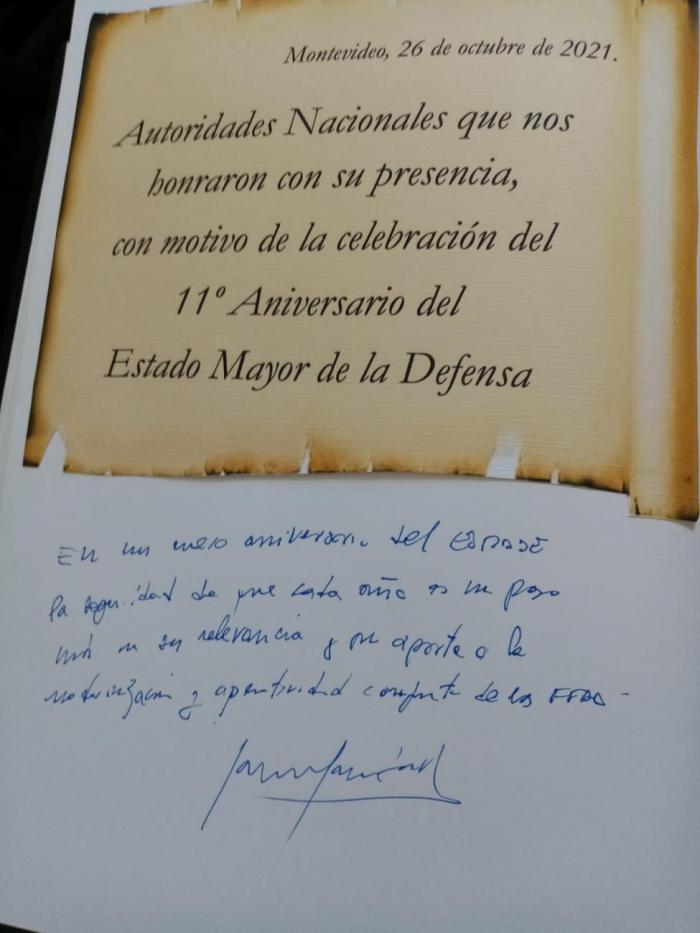 Montevideo, 26 de octubre de 2021.
Autoridades Nacionales que nos
honraron con su presencia,
con motivo de la celebración del
11º Aniversario del
Estado Mayor de la Defensa
En un nuevo aniversario del ESMADE
la seguridad de que cada año es un paso
más en su relevancia y su aporte a la
modernización y operatividad conjunta de las FFAA -